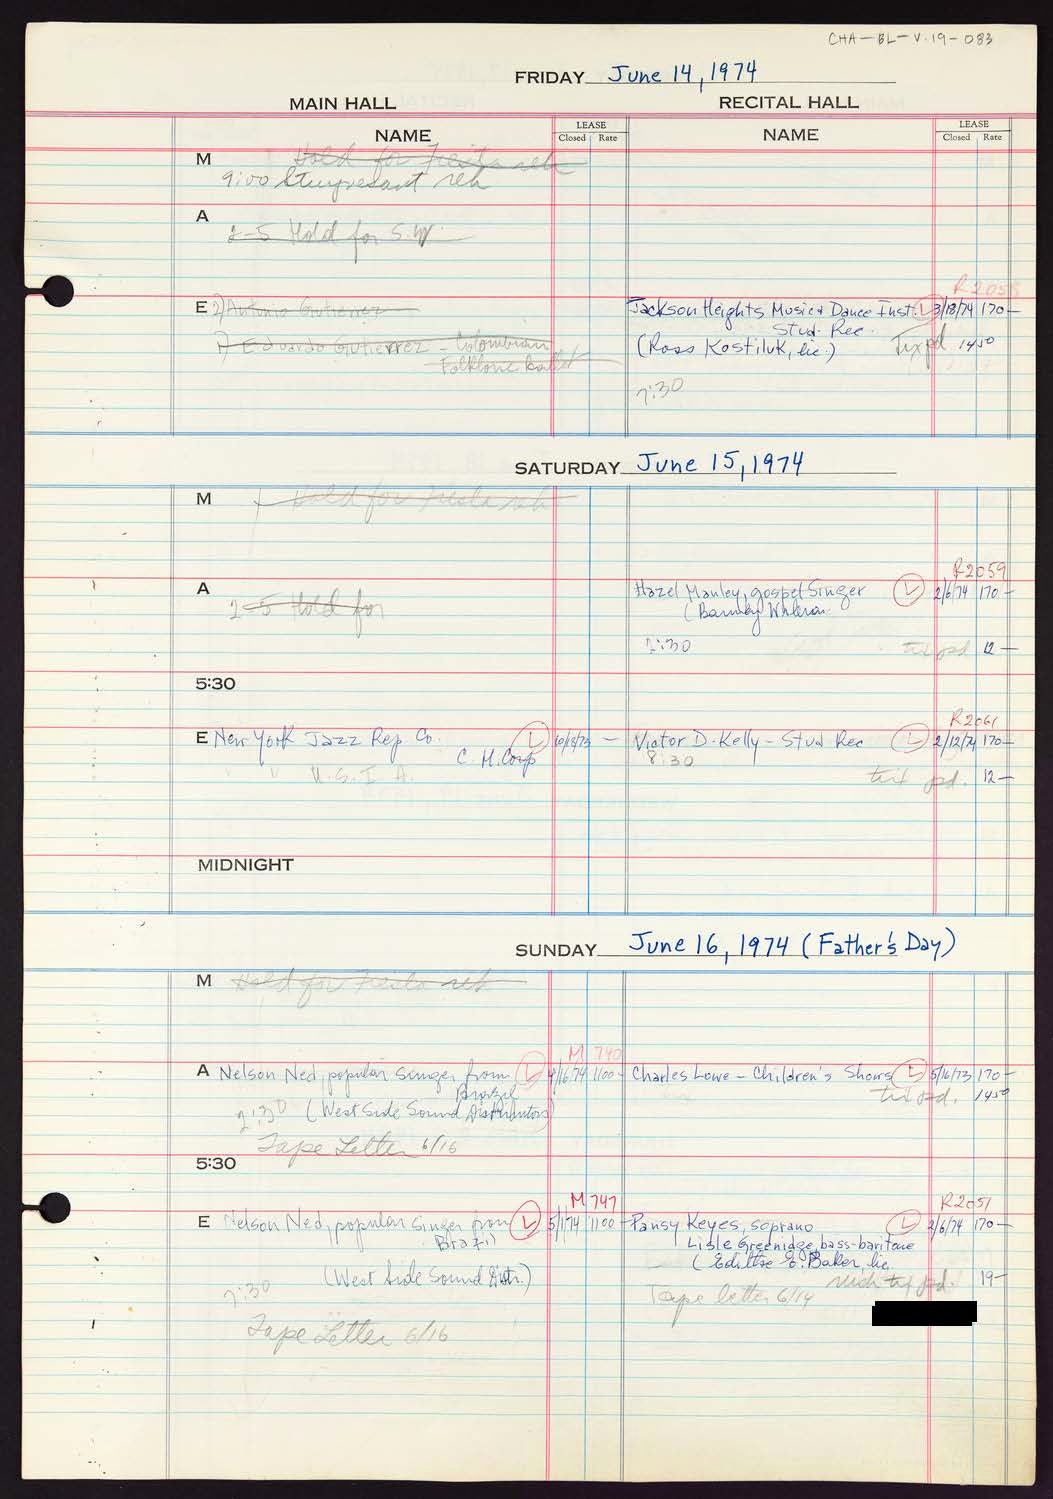 CHA-BL-V.19-083
FRIDAY June 14, 1974
MAIN HALL
RECITAL HALL
NAME
LEASE
Closed Rate
NAME
LEASE
Closed Rate
M
Hold for Fiesta reh
9:00 Stuyvesant reh
A
2-5 Hold for S.W.
E 2) Antonio Gutierrez
1) Eduardo Gutierrez - Colombian
Folklore Ballet
R2058
Jackson Heights Music & Dance Inst. L 3/18/74 170-
Stud. Rec.
(Ross Kostiluk, lic.) Tix pd 1450
7:30
SATURDAY June 15, 1974
M
Hold for Fiesta reh
A
2-5 Hold for
R2059
Hazel Manley, gospel Singer L 2/6/74 170-
(Barnaby
2:30
tix pd 12-
5:30
E New York Jazz Rep Co. L 10/18/73 -
C.H.Corp
" " U.S.I.A.
R2061
Victor D. Kelly - Stud Rec L 2/12/74 170-
8:30
tix pd. 12-
MIDNIGHT
SUNDAY June 16, 1974 (Father's Day)
M
Hold for Fiesta reh
M 740
A Nelson Ned, popular singer from L 4/16/74 1100-
Brazil
2:30 (West Side Sound Distributors)
Tape Letter 6/16
Charles Lowe - Children's Shows L 5/16/73 170-
tix pd. 1450
5:30
M 747
E Nelson Ned, popular singer from L 5/1/74 1100-
Brazil
(West Side Sound Distr.)
7:30
Tape Letter 6/16
R2051
Pansy Keyes, soprano L 2/6/74 170-
Lisle Greenidge, bass-baritone
( E. Baker, lic.
tix pd. 19-
Tape letter 6/14